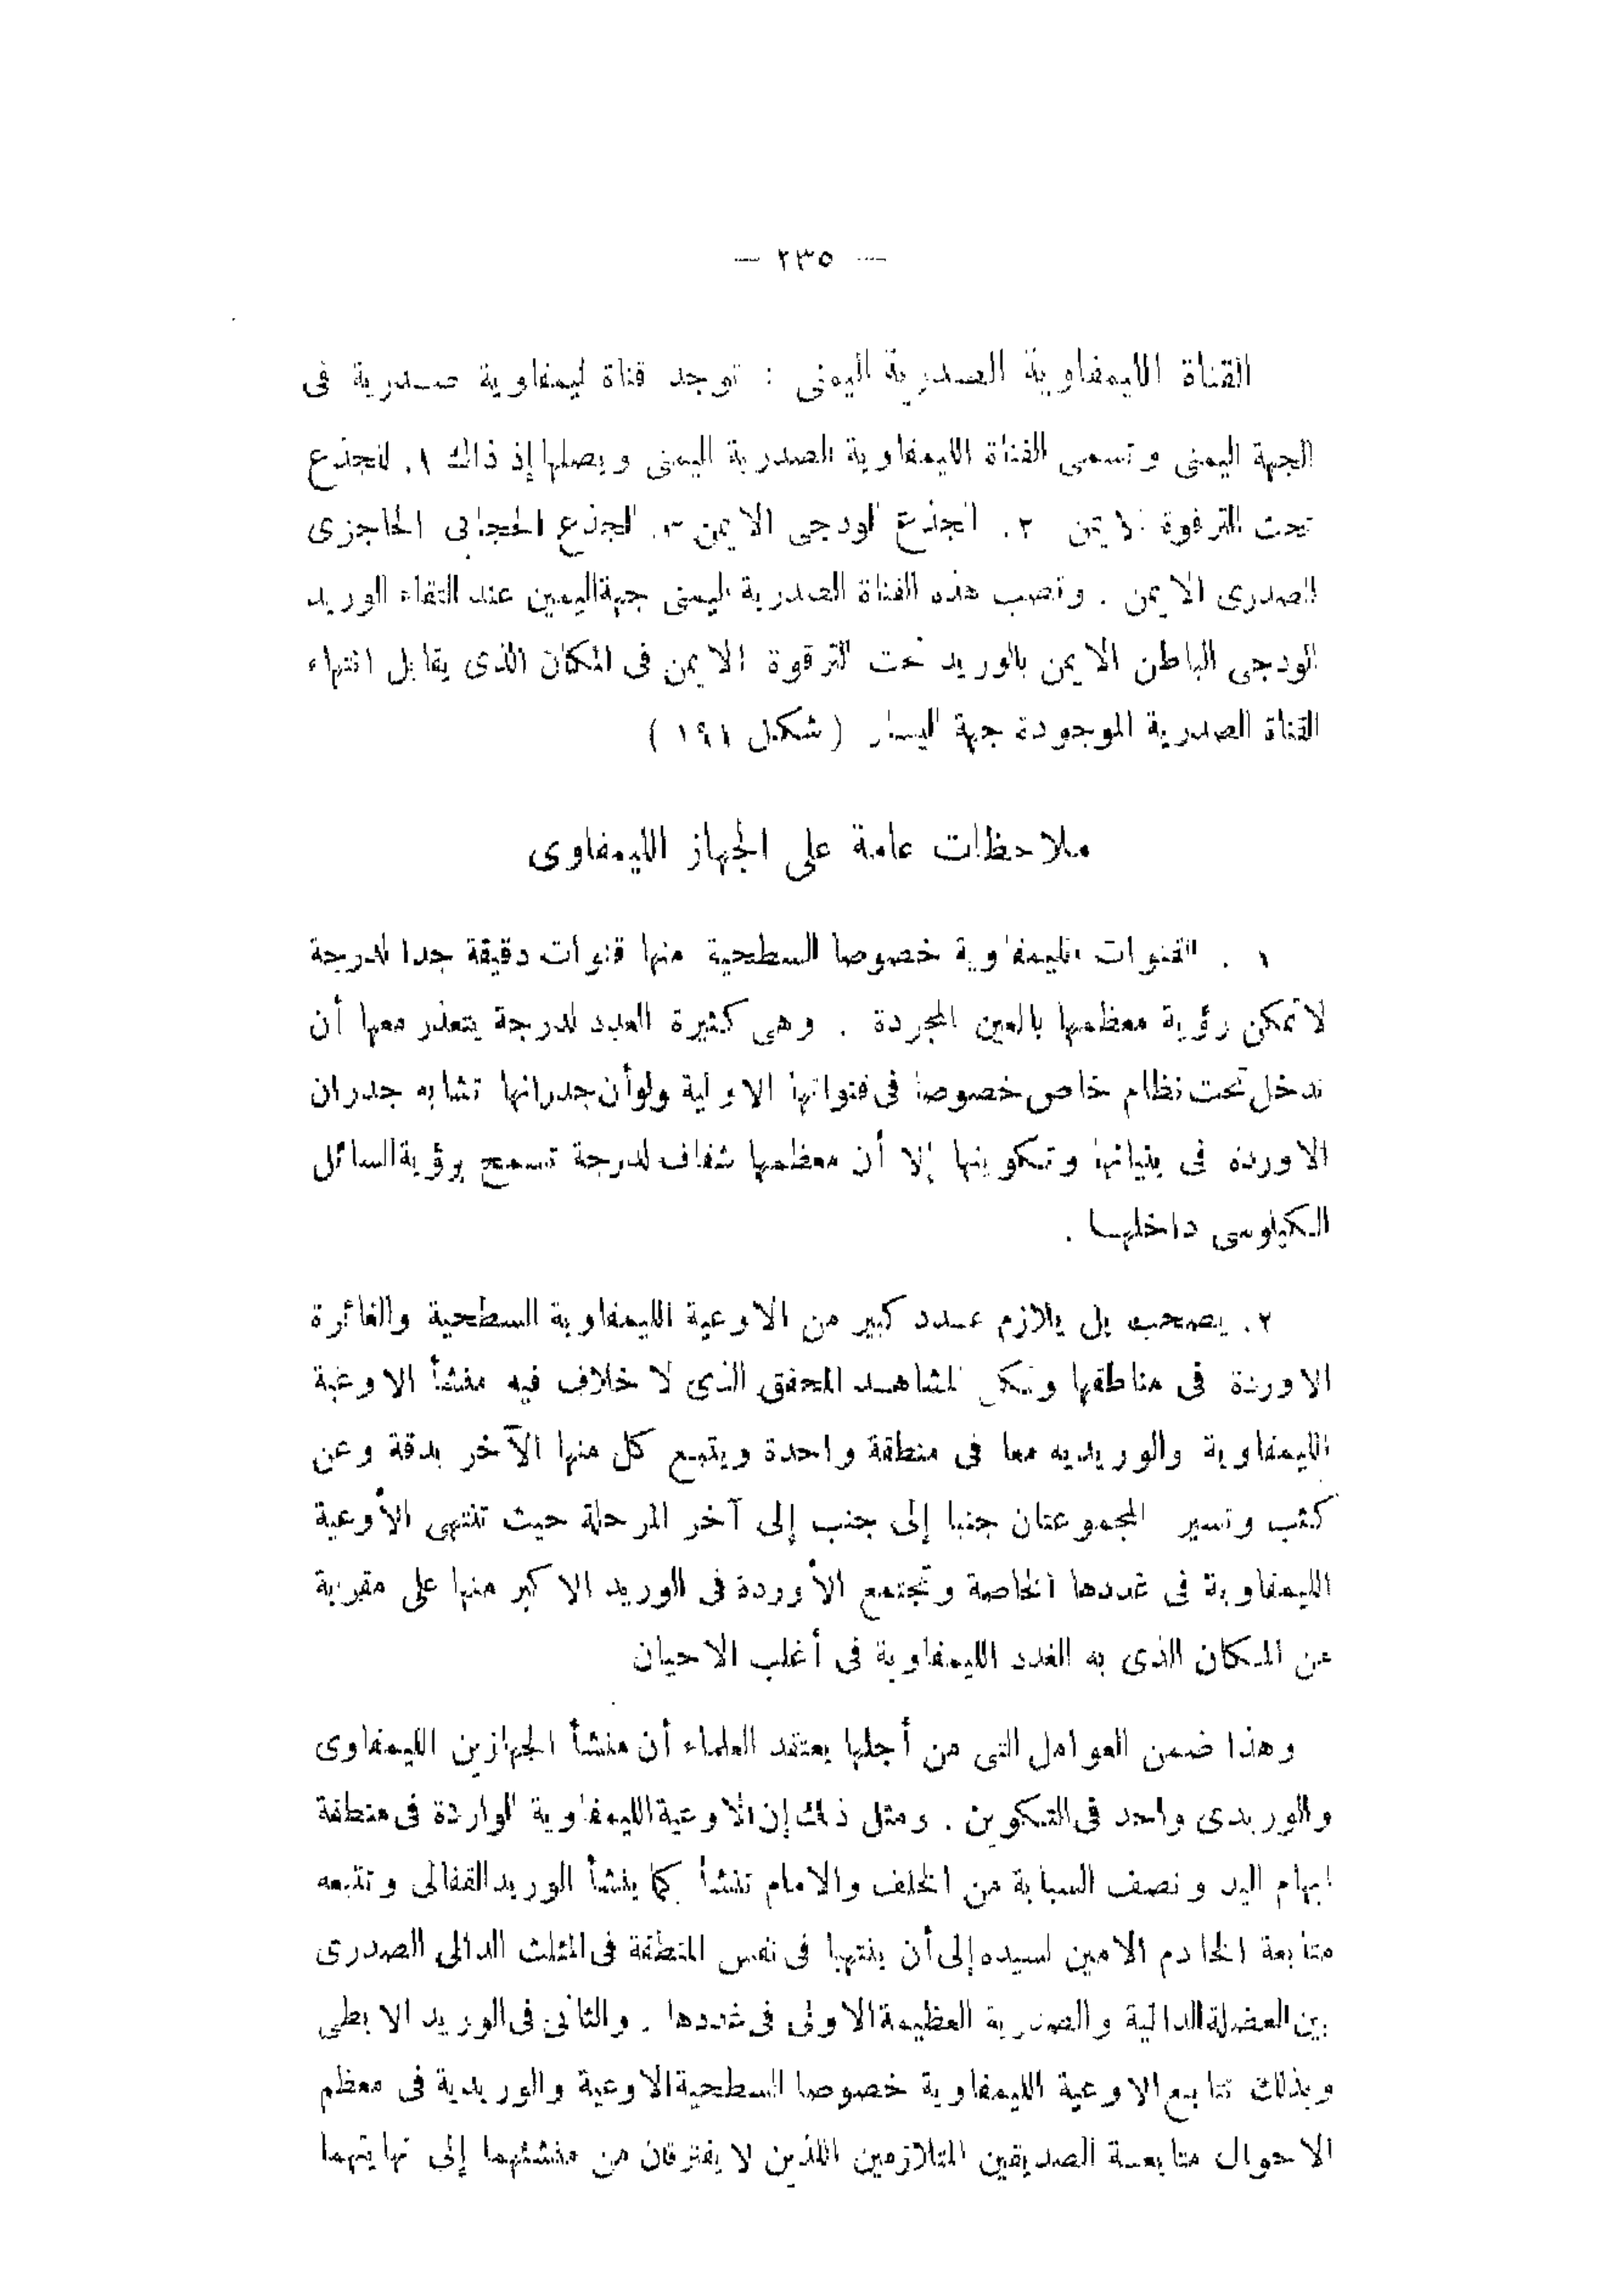 — ٢٣٥ —
القناة الليمفاوية الصدرية اليمنى : توجد قناة ليمفاوية صدرية فى
الجهة اليمنى وتسمى القناة الليمفاوية الصدرية اليمنى ويصلها إذ ذاك ١. الجذع
تحت الترقوة الايمن ٢. الجذع الودجى الايمن ٣. الجذع الحجابى الحاجزى
الصدرى الايمن . وتصب هذه القناة الصدرية اليمنى جهة اليمين عند التقاء الوريد
الودجى الباطن الايمن بالوريد تحت الترقوة الايمن فى المكان الذى يقابل انتهاء
القناة الصدرية الموجودة جهة اليسار ( شكل ١٩١ )
ملاحظات عامة على الجهاز الليمفاوى
١ . القنوات الليمفاوية خصوصا السطحية منها قنوات دقيقة جدا لدرجة
لا تمكن رؤية معظمها بالعين المجردة . وهى كثيرة العدد لدرجة يتعذر معها أن
تدخل تحت نظام خاص خصوصا فى قنواتها الاولية ولو أن جدرانها تشابه جدران
الاوردة فى بنيانها وتكوينها إلا أن معظمها شفاف لدرجة تسمح برؤية السائل
الكيلوسى داخلها .
٢. يصحب بل يلازم عدد كبير من الاوعية الليمفاوية السطحية والغائرة
الاوردة فى مناطقها ولكن المشاهد المحقق الذى لا خلاف فيه منشأ الاوعية
الليمفاوية والوريديه معا فى منطقة واحدة ويتبع كل منها الآخر بدقة وعن
كثب وتسير المجموعتان جنبا إلى جنب إلى آخر المرحلة حيث تنتهى الأوعية
الليمفاوية فى غددها الخاصة وتجتمع الأوردة فى الوريد الاكبر منها على مقربة
من المكان الذى به الغدد الليمفاوية فى أغلب الاحيان
وهذا ضمن العوامل التى من أجلها يعتقد العلماء أن منشأ الجهازين الليمفاوى
والوريدى واحد فى التكوين . ومثل ذلك إن الاوعية الليمفاوية الواردة فى منطقة
ابهام اليد ونصف السبابة من الخلف والامام تنشأ كما ينشأ الوريد القفالى وتتبعه
متابعة الخادم الامين لسيده إلى أن ينتهيا فى نفس المنطقة فى المثلث الدالى الصدرى
بين العضلة الدالية والصدرية العظيمة الاولى فى غددها . والثانى فى الوريد الابطى
وبذلك تتابع الاوعية الليمفاوية خصوصا السطحية الاوعية والوريدية فى معظم
الاحوال متابعة الصديقين المتلازمين اللذين لا يفترقان من منشئهما إلى نهايتهما